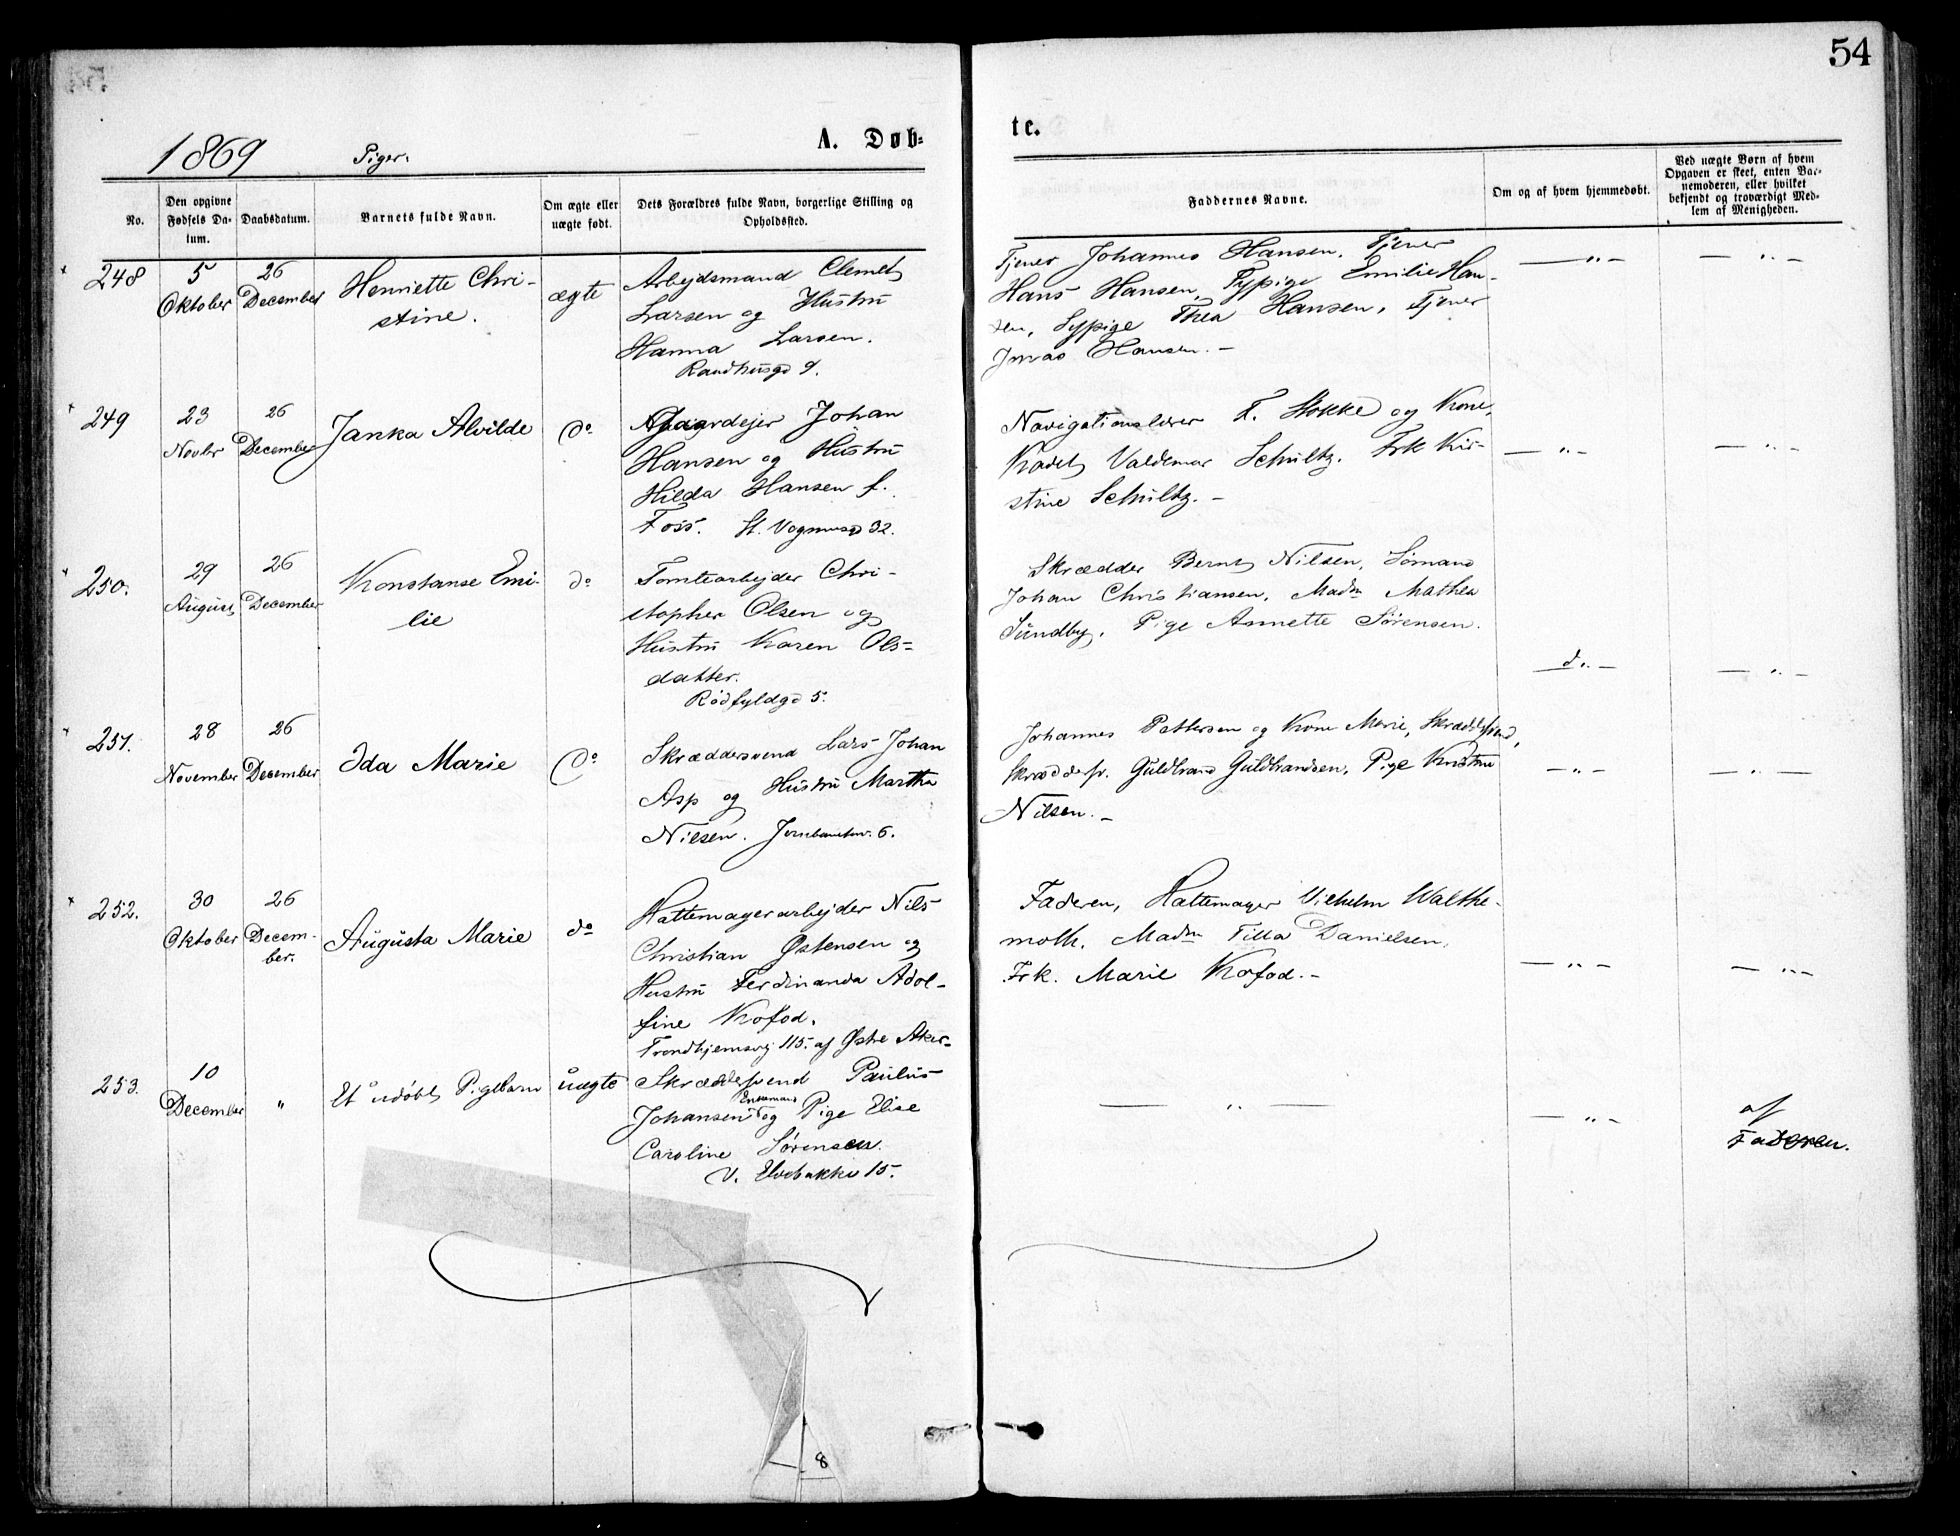 54
1869
Piger.
A. Døb-
te.
No.
Den opgivne Fødsels Da-tum.
Daabsdatum.
Barnets fulde Navn.
Om ægte eller uægte født.
Dets Forældres fulde Navn, borgerlige Stilling og Opholdssted.
Faddernes Navne.
Om og af hvem hjemmedøbt.
Ved uægte Børn af hvem Opgaven er skeet, enten Bar-nemoderen, eller hvilket bekjendt og troværdigt Med-lem af Menigheden.
248
5 Oktober
26 December
Henriette Chri-
stine.
ægte
Arbejdsmand Clemet
Larsen og Hustru
Hanna Larsen.
Tjener Johannes Hansen, Tjener
Hans Hansen, Sypige Emilie Han-
sen, Sypige Thea Hansen, Tjener
Hansen. -
— " —
— " —
249
23 Novbr
26 December
Janka Alvilde
do
Johan
Hansen og Hustru
Hilda Hansen f.
Foss. St. Vognmsgd 32.
Navigationslærer F. Stokke og Kone,
Kadet Valdemar Schultz. Frk Kir-
stine Schultz. -
— " —
— " —
250.
29 August
26 December
Konstanse Emi-
lie
do
Tomtearbejder Chri-
stopher Olsen og
Hustru Karen Ols-
datter.
Rødfyldgd 5.
Skrædder Bernt Nilsen, Sömand
Johan Christiansen, Madm Mathea
Sundby, Pige Annette Sørensen.
— " —
— " —
251.
28 November
26 December
Ida Marie
do
Skræddersvend Lars Johan
Asp og Hustru Martha
Nilsen. 6.
Johannes Pettersen og Kone Marie, Skræddersvend,
Guldbrand Guldbrandsen, Pige
Nilsen. -
— " —
— " —
252.
30 Oktober
26 Decem-
ber.
Augusta Marie
do
Hattemagerarbejder Nils
Christian Østensen og
Hustru Ferdinanda Adol-
fine Kofod.
Trondhjemsvej 115. af Østre Aker-
Faderen, Hattemager Vilhelm Walthe-
moth. Madm Tilla Danielsen,
Frk. Marie Kofod. -
— " —
— " —
253.
10 December
"
Et udøbt Pigebarn
uægte
Skræddersvend Paulus
Johansen Enkemand og Pige Elise
Caroline Sørensen.
V. Elvebakke 15.
— " —
— " —
af
Faderen.
8